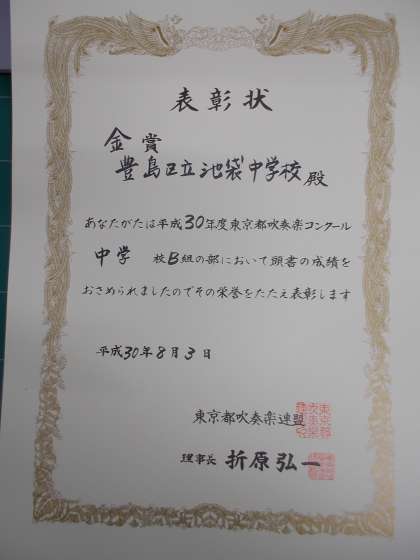 表彰状
金賞
豊島区立池袋中学校 殿
あなたがたは平成30年度東京都吹奏楽コンクール
中学 校B組の部において頭書の成績を
おさめられましたのでその栄誉をたたえ表彰します
平成30年8月3日
東京都吹奏楽連盟
理事長 折原弘一